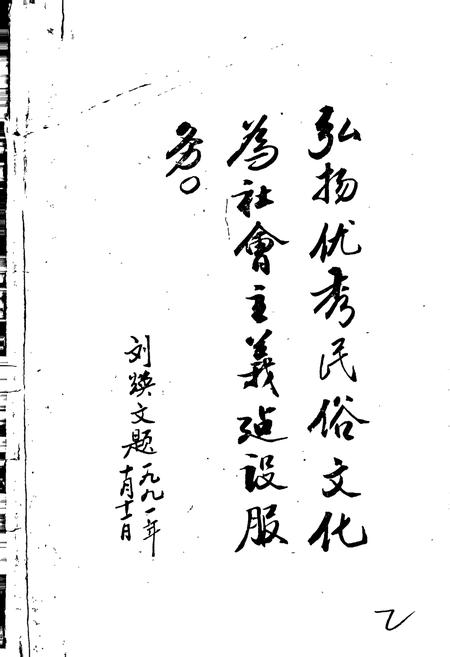 弘扬优秀民俗文化
為社會主義建设服
务。
刘焕文题一九九一年
十月十二日
乙